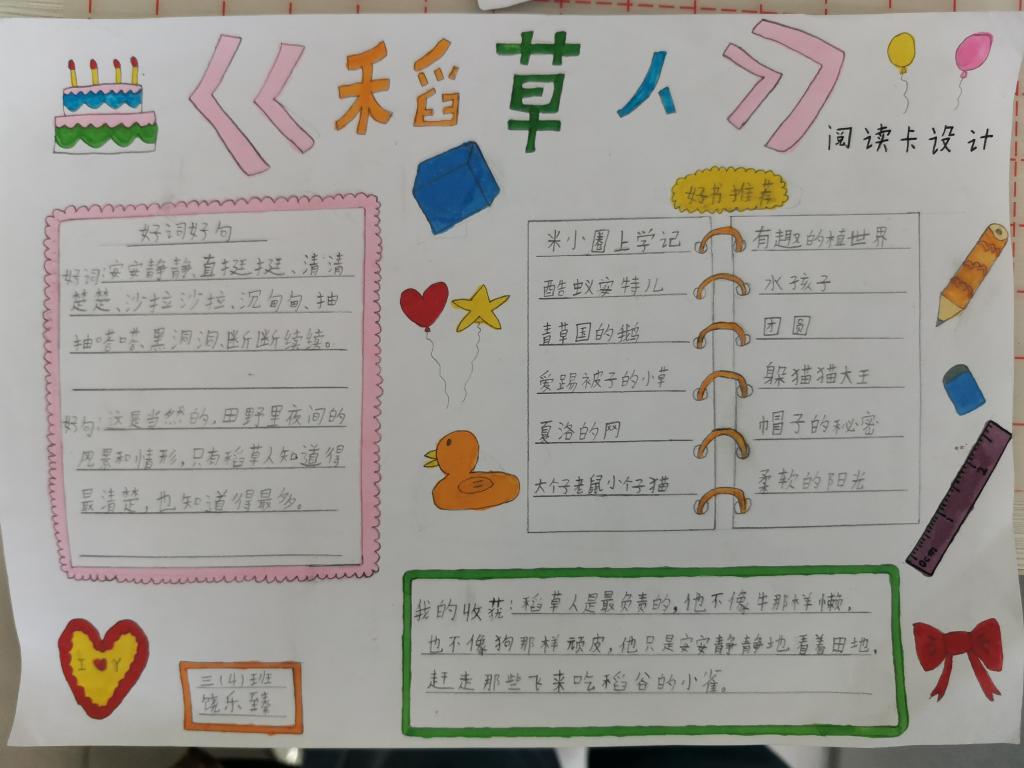 《稻草人》
阅读卡设计
好词好句
好词:安安静静、直挺挺、清清
楚楚、沙拉沙拉、沉甸甸、抽
抽嗒嗒、黑洞洞、断断续续。
好句:这是当然的,田野里夜间的
风景和情形,只有稻草人知道得
最清楚,也知道得最多。
好书推荐
米小圈上学记
酷蚁安特儿
青草国的鹅
爱踢被子的小草
夏洛的网
大个子老鼠小个子猫
有趣的植世界
水孩子
团圆
躲猫猫大王
帽子的秘密
柔软的阳光
我的收获:稻草人是最负责的,他不像牛那样懒,
也不像狗那样顽皮,他只是安安静静地看着田地,
赶走那些飞来吃稻谷的小雀。
I Y
三(4)班
饶乐臻